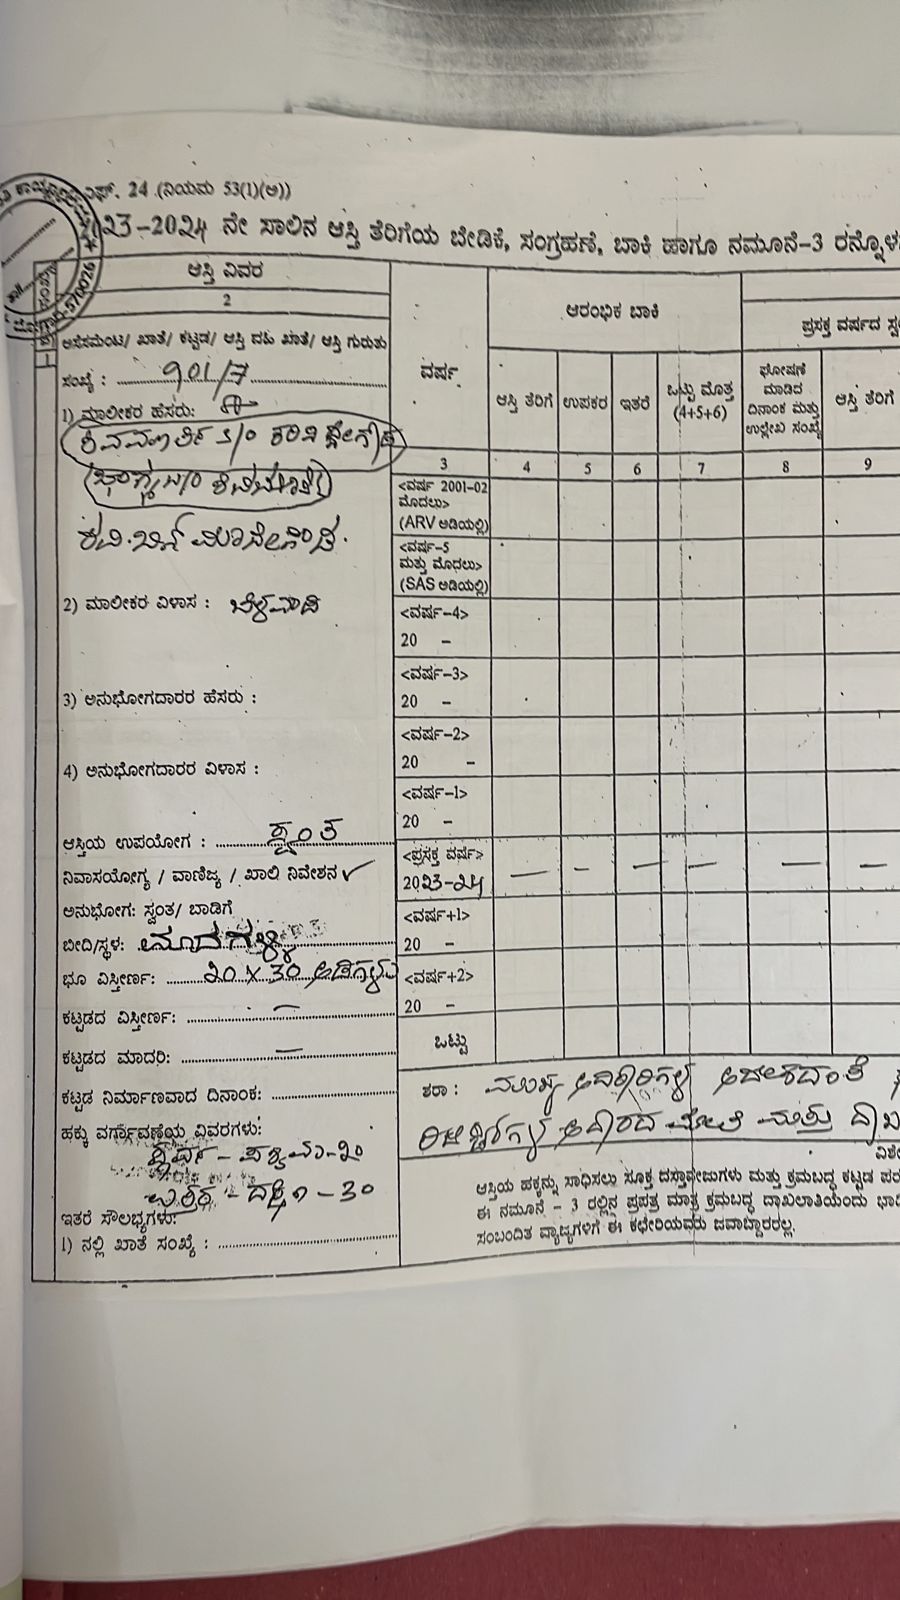 ಎಫ್. 24 (ನಿಯಮ 53(1)(ಅ))
2023-2024 ನೇ ಸಾಲಿನ ಆಸ್ತಿ ತೆರಿಗೆಯ ಬೇಡಿಕೆ, ಸಂಗ್ರಹಣೆ, ಬಾಕಿ ಹಾಗೂ ನಮೂನೆ-3 ರನ್ನೊಳ
ಆಸ್ತಿ ವಿವರ
2
ಅಸೆಸಮೆಂಟ/ ಖಾತೆ/ ಕಟ್ಟಡ/ ಆಸ್ತಿ ದಹಿ ಖಾತೆ/ ಆಸ್ತಿ ಗುರುತು
ಸಂಖ್ಯೆ : 901/7
1) ಮಾಲೀಕರ ಹೆಸರು:
2) ಮಾಲೀಕರ ವಿಳಾಸ : ಬೆಳವಾಡಿ
3) ಅನುಭೋಗದಾರರ ಹೆಸರು :
4) ಅನುಭೋಗದಾರರ ವಿಳಾಸ :
ಆಸ್ತಿಯ ಉಪಯೋಗ : ಸ್ವಂತ
ನಿವಾಸಯೋಗ್ಯ / ವಾಣಿಜ್ಯ / ಖಾಲಿ ನಿವೇಶನ ✓
ಅನುಭೋಗ: ಸ್ವಂತ/ ಬಾಡಿಗೆ
ಬೀದಿ/ಸ್ಥಳ: ಮಾದಗಳ್ಳಿ
ಭೂ ವಿಸ್ತೀರ್ಣ: ೨೦ X 30 ಅಡಿಗಳು
ಕಟ್ಟಡದ ವಿಸ್ತೀರ್ಣ: —
ಕಟ್ಟಡದ ಮಾದರಿ: —
ಕಟ್ಟಡ ನಿರ್ಮಾಣವಾದ ದಿನಾಂಕ:
ಹಕ್ಕು ವರ್ಗಾವಣೆಯ ವಿವರಗಳು:
ಪೂರ್ವ - ಪಶ್ಚಿಮ - ೨೦
ಉತ್ತರ - ದಕ್ಷಿಣ - 30
ಇತರೆ ಸೌಲಭ್ಯಗಳು:
1) ನಲ್ಲಿ ಖಾತೆ ಸಂಖ್ಯೆ :
ವರ್ಷ
3
<ವರ್ಷ 2001-02
ಮೊದಲು>
(ARV ಅಡಿಯಲ್ಲಿ)
<ವರ್ಷ-5
ಮತ್ತು ಮೊದಲು>
(SAS ಅಡಿಯಲ್ಲಿ)
<ವರ್ಷ-4>
20 -
<ವರ್ಷ-3>
20 -
<ವರ್ಷ-2>
20 -
<ವರ್ಷ-1>
20 -
<ಪ್ರಸಕ್ತ ವರ್ಷ>
2023-24 — — — — — —
<ವರ್ಷ+1>
20 -
<ವರ್ಷ+2>
20 -
ಒಟ್ಟು
ಆರಂಭಿಕ ಬಾಕಿ
ಆಸ್ತಿ ತೆರಿಗೆ
ಉಪಕರ
ಇತರೆ
ಒಟ್ಟು ಮೊತ್ತ
(4+5+6)
4 5 6 7
ಪ್ರಸಕ್ತ ವರ್ಷದ ಸ್ವ
ಘೋಷಣೆ
ಮಾಡಿದ
ದಿನಾಂಕ ಮತ್ತು
ಉಲ್ಲೇಖ ಸಂಖ್ಯೆ
ಆಸ್ತಿ ತೆರಿಗೆ
8 9
ಷರಾ : ಮುಖ್ಯ ಅಧಿಕಾರಿಗಳ ಆದೇಶದಂತೆ
ಮತ್ತು ದಾಖ
ವಿಶೇ
ಆಸ್ತಿಯ ಹಕ್ಕನ್ನು ಸಾಧಿಸಲು ಸೂಕ್ತ ದಸ್ತಾವೇಜುಗಳು ಮತ್ತು ಕ್ರಮಬದ್ಧ ಕಟ್ಟಡ ಪರ
ಈ ನಮೂನೆ - 3 ರಲ್ಲಿನ ಪ್ರಪತ್ರ ಮಾತ್ರ ಕ್ರಮಬದ್ಧ ದಾಖಲಾತಿಯೆಂದು ಭಾವಿ
ಸಂಬಂದಿತ ವ್ಯಾಜ್ಯಗಳಿಗೆ ಈ ಕಛೇರಿಯವರು ಜವಾಬ್ದಾರರಲ್ಲ.